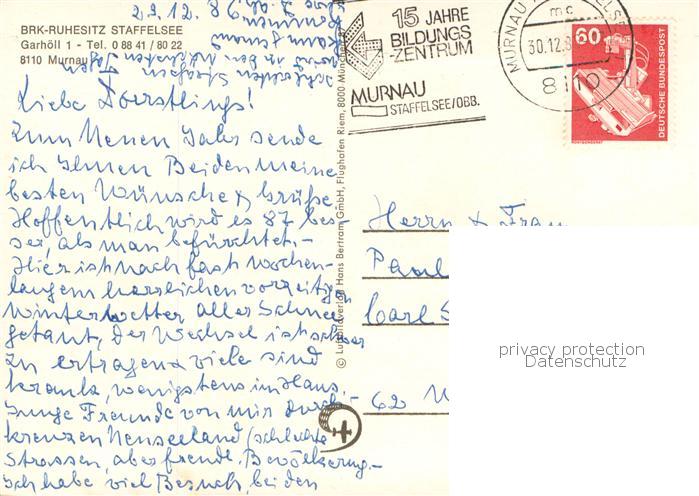 22.12.86
BRK-RUHESITZ STAFFELSEE
Garhöll 1 - Tel. 0 88 41 / 80 22
8110 Murnau
Liebe Doerstlings!
Zum Neuen Jahr sende
ich Ihnen Beiden meine
besten Wünsche & Grüße
Hoffentlich wird es 87 bes-
ser, als man befürchtet.-
Hier ist nach fast wochen-
langem herrlichen vorzeitigen
Winterwetter aller Schnee
getaut, der Wechsel ist schwer
zu ertragen & viele sind
krank, wenigstens im Haus.
Junge Freunde von mir durch-
kreuzen Neuseeland (schlechte
Strassen, aber freundl. Bevölkerung.-
Ich habe viel Besuch, beiden
© Luftbildverlag Hans Bertram GmbH, Flughafen Riem, 8000 München
15 JAHRE
BILDUNGS
-ZENTRUM
MURNAU
STAFFELSEE/OBB.
MURNAU
mc
30.12.8
8110
60
DEUTSCHE BUNDESPOST
Herrn & Frau
Paul
Carl
62 W
privacy protection
Datenschutz